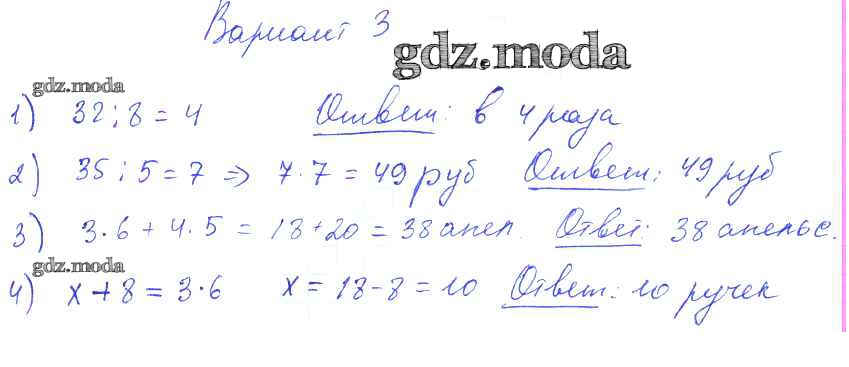 Вариант 3
gdz.moda
gdz.moda
1) 32 : 8 = 4 Ответ: в 4 раза
2) 35 : 5 = 7 => 7 · 7 = 49 руб Ответ: 49 руб
3) 3 · 6 + 4 · 5 = 18 + 20 = 38 апел. Ответ: 38 апельс.
gdz.moda
4) x + 8 = 3 · 6 x = 18 - 8 = 10 Ответ: 10 ручек